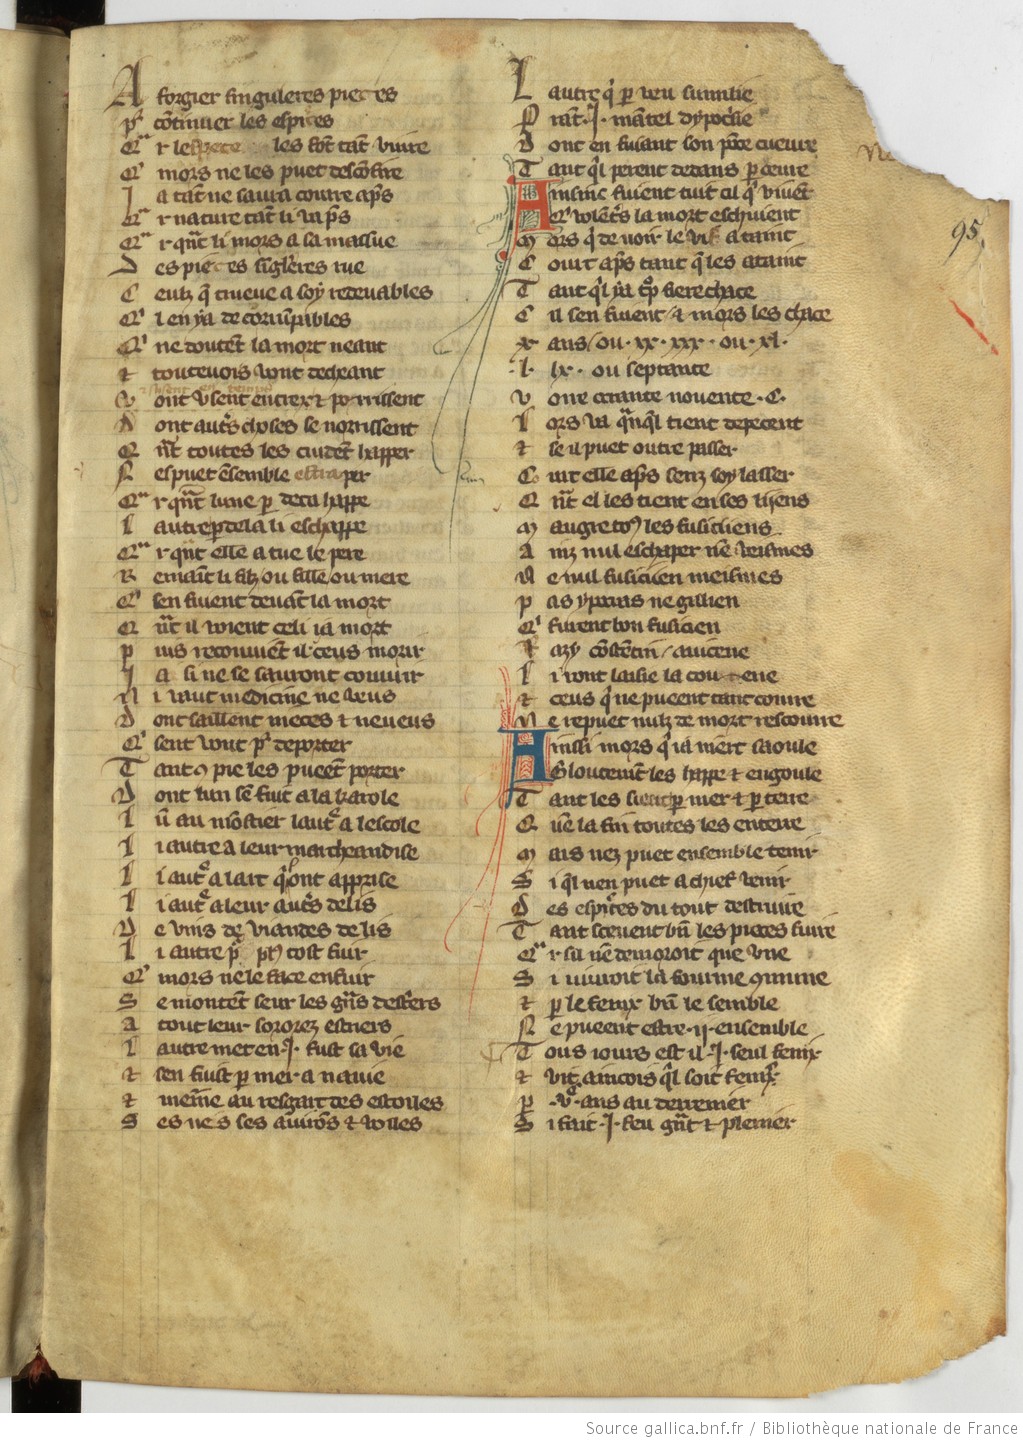 A forgier singuleres pieces
pͬ cōtinuer les espices
Qͣr les les sōt tāt viure
Qͥ mors ne les puet descōfire
J a tāt ne saura courre ap̄s
Qͣr nature tāt li va p̄s
Qͣr qn̄t li mors a sa massue
D es pieces sīgl̄eres tue
C eulz q̄ treuue a soy redeuables
Qͥ l en ya de corrūpables
Qͥ ne doutēt la mort neant
⁊ toutesuois vont decheant
⁊ porrissent
D ont aut̄s choses se norrissent
Q n̄t toutes les cuidēt happer
N es puet ēsemble per
Qͣr qn̄t lune ꝑ deca happe
L autre ꝑ dela li eschappe
Qͣr qn̄t elle a tue le pere
R emait li filz ou fille ou mere
Qͥ sen fuient deuāt la mort
Q n̄t il voient celi ia mort
P uis reconuiēt il ceus morir
J a si ne se sauront couurir
N i vaut medicine ne veus
D ont saillent nieces ⁊ neueus
Qͥ sent vont pͬ deporter
T ant ꝯ pie les pueēt porter
D ont lun sē fuit a la karole
L ū au mōstier lautͤ a lescole
L i autre a leur marcheandise
L i autͤ a lart qͥl ont apprise
L i autͤ a leur aut̄s delis
D e vins de viandes de lis
L i autre pͬ tost fuir
Qͥ mors ne le face enfuir
S e montēt seur les gn̄s destͥers
A tout leur sororez estriers
L autre met en .j. fust sa vie
⁊ sen fuit ꝑ mer a nauie
⁊ meīne au resgart des estoiles
S es nes ses auirōs ⁊ voiles
L autre qͥ ꝑ veu sumilie
P rāt .j. mātel dypocͥsie
D ont en fuiant son pēser cueuure
T ant qͥl perent dedans ꝑ oeuure
A insinc fuient tuit cil qͥ viuēt
Qͥ volent̄s la mort eschiuent
M ors qͥ de noir le vis a taint
C ourt ap̄s tant q̄ les ataint
T ant qͥl ya tp̄ fiere chace
C il sen fuient ⁊ mors les chace
x. ans ou .xx. xxx. ou .xl.
.l. lx. ou septante
V oire oitante nouente .C.
L ors va qͣnqͥl tient depecent
⁊ se il puet outre passer
C ourt elle ap̄s senz soy lasser
Q n̄t el les tient en ses liens
M augre to9 les fusiciens
A inz nul eschaper nē veismes
N e nul fusicien meismes
P as ypocras ne gillien
Qͥ furent bon fusicien
R azy cōstentin auicene
L i ront laisie la couene
⁊ ceus qͥ ne pueent tant courre
N e repuet nulz de mort rescourre
A inssi mors qͥ ia niert saoule
Gloutemēt les happe ⁊ engoule
T ant les ꝑ mer ⁊ ꝑ terre
Q uē la fin toutes les enterre
M ais nez puet ensemble tenir
S i qͥl nen puet a chief venir
D es espices du tout destruire
T ant sceuent bn̄ les pieces fuire
Qͣr sil nē demoroit que vne
S i viuroit la fourme ꝯmune
⁊ ꝑ le fenix bn̄ le semble
N e pueent estre .ij. ensemble
T ous iours est il .j. seul fenix
⁊ vit aincois qͥl soit fenix
P .vͨ. ans au derrenier
S i fait .j. feu gn̄t ⁊ plenier
95
Source gallica.bnf.fr / Bibliothèque nationale de France